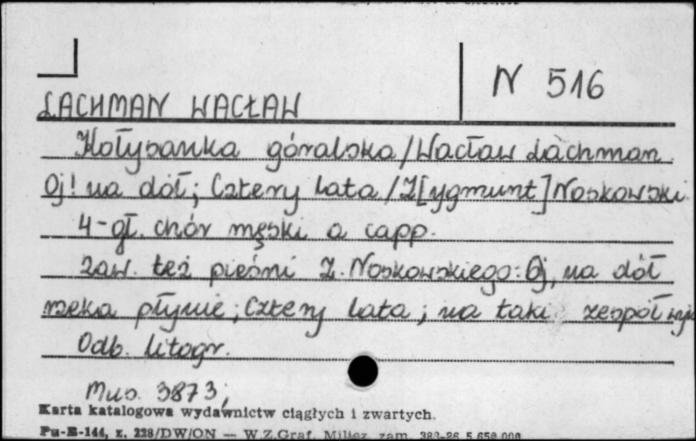 N 516
LACHMAN WACŁAW
Kołysanka góralska / Wacław Lachman.
Oj! na dół; Cztery lata / Z[ygmunt] Noskowski.
4-gł. chór męski a capp.
Zaw. też pieśni Z. Noskowskiego: Oj, na dół
rzeka płynie; Cztery lata; na taki zespół
Odb. litogr.
Mus. 3873;
Karta katalogowa wydawnictw ciągłych i zwartych.
Pu-K-144, z. 228/DW/ON — W.Z.Graf. Milicz, zam.